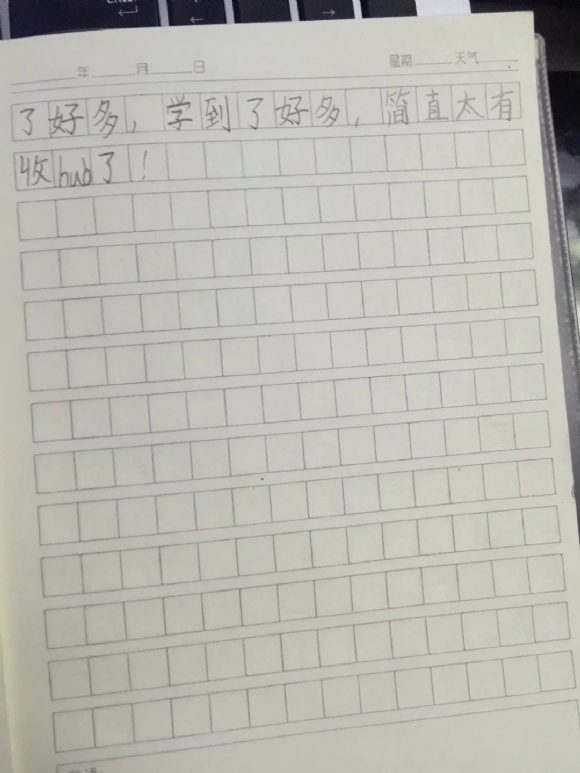 年 月 日 星期 天气
了好多，学到了好多，简直太有
收hub了！